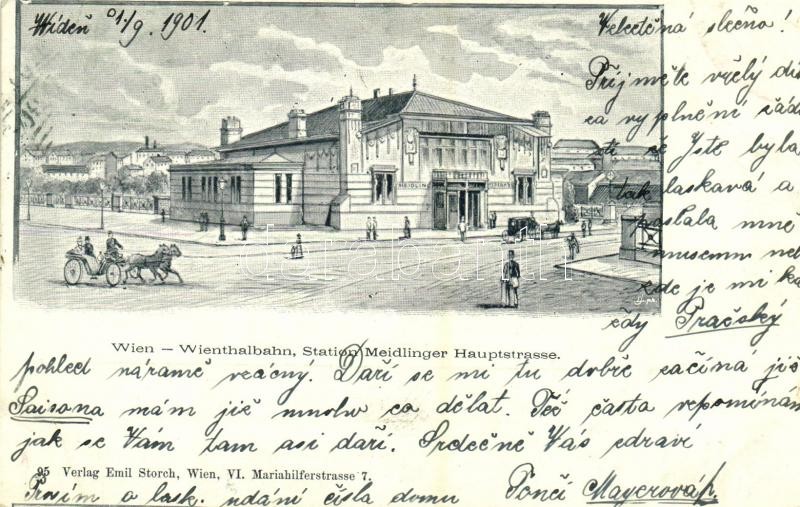 Wídeň 1/9. 1901.
Velectěná slečno!
Přijměte vřelý dí
za vyplnění žád
ti že Jste byla
tak laskavá a
poslala mně
museum neb
zde je mi ka
ždy Pračský
MEIDLING
Wien — Wienthalbahn, Station Meidlinger Hauptstrasse.
pohled náramě vzácný. Daří se mi tu dobře začíná již
Saisona mám již mnoho co dělat. Též často vzpomínám
jak se Vám tam asi daří. Srdečně Vás zdraví
95 Verlag Emil Storch, Wien, VI. Mariahilferstrasse 7.
Prosím o lask. udání čísla domu Tonči Mayerová
darabanth